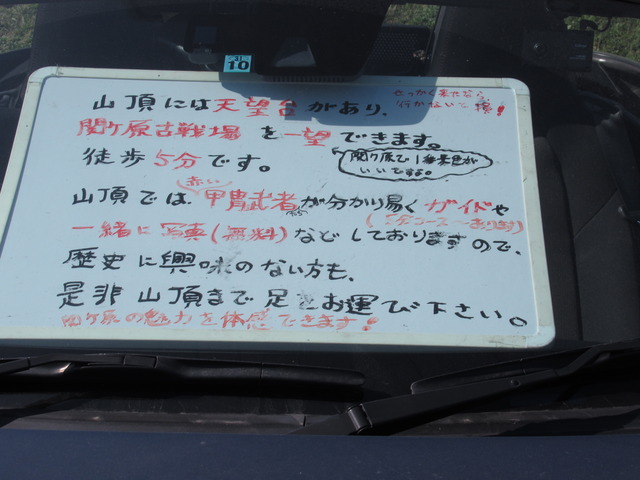 31
10
山頂には天望台があり、
せっかく来たなら
行かないと損!
関ケ原古戦場を一望できます。
徒歩5分です。
関ケ原で1番景色が
いいですよ。
赤い
山頂では、甲冑武者が分かり易くガイドや
一緒に写真(無料)などしておりますので、
歴史に興味のない方も、
是非山頂まで足をお運び下さい。
関ケ原の魅力を体感できます!